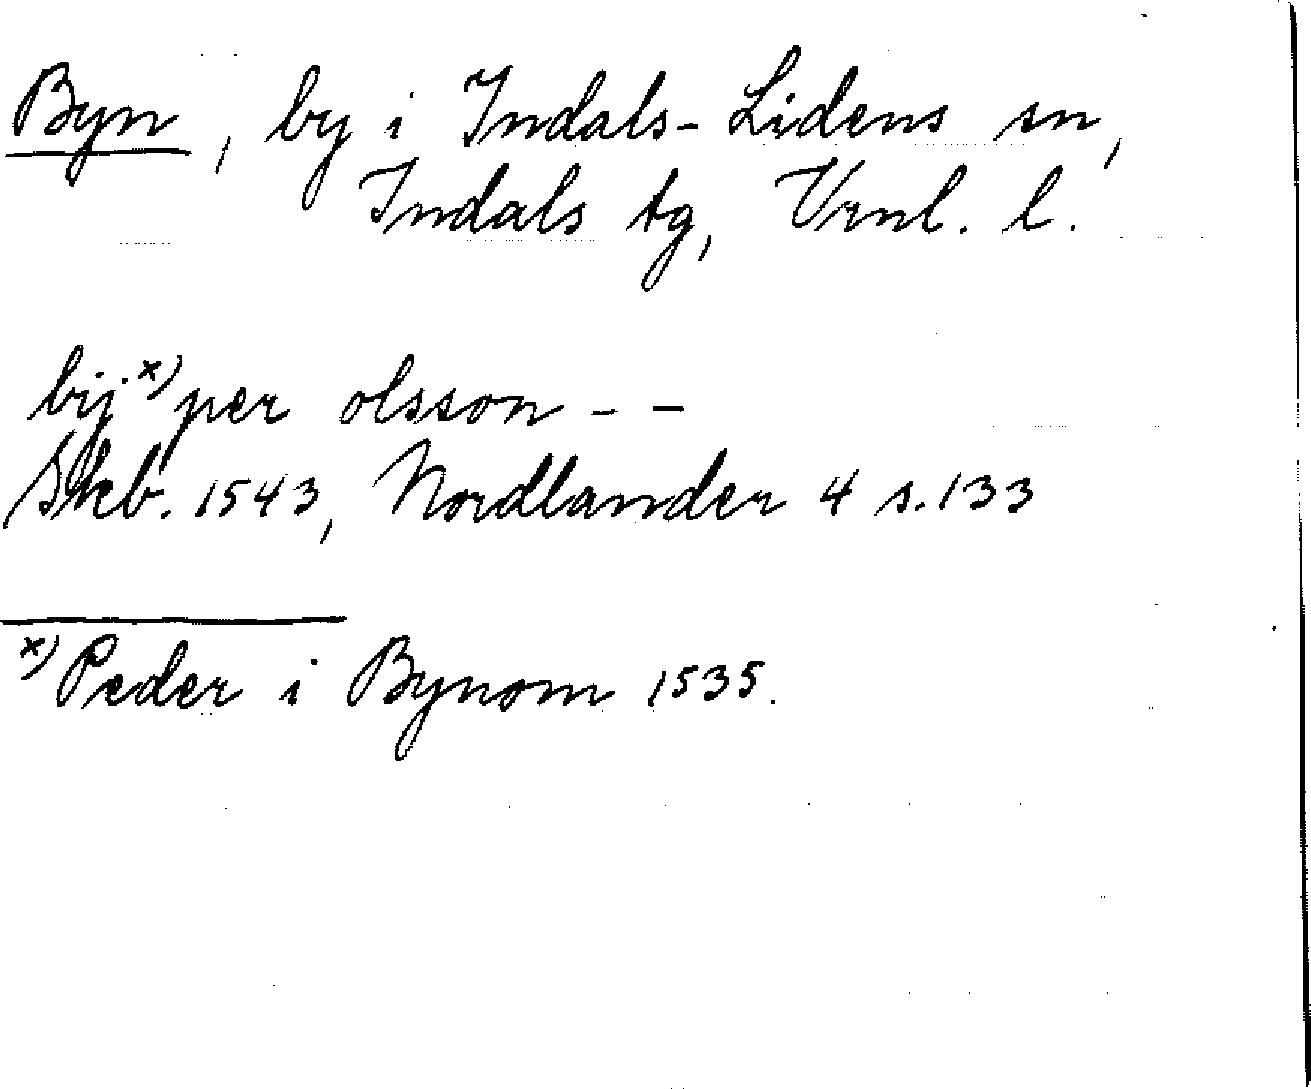 Byn, by i Indals-Lidens sn,
Indals tg, Vrnl. l.
bij x) per olsson - -
Skb. 1543, Nordlander 4 s. 133
x) Peder i Bynom 1535.